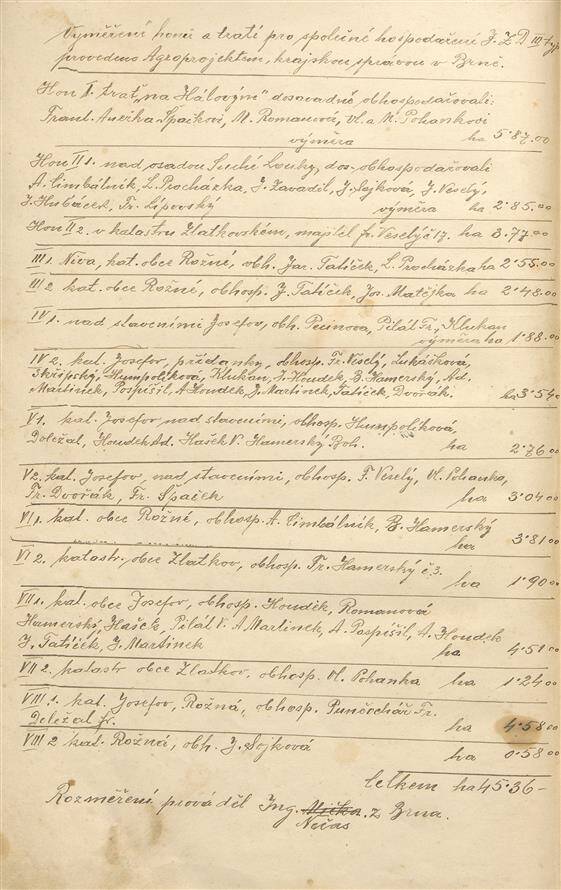 Vyměření honů a tratí pro společné hospodaření J.Z.D III typ
provedeno Agroprojektem, krajskou správou v Brně.
Hon I. trať „na Hálovým" dosavadně obhospodařovali:
Frant. Anežka Špačkovi, M. Romanová, Vl. a M. Pohankovi
výměra ha 5˙87.00
Hon II 1. nad osadou Suché Louky, dos. obhospodařovali
A. Cimbálník, L. Procházka, J. Zavadil, J. Sojková, J. Veselý,
J. Hubáček, Fr. Lipovský výměra ha 2˙85.00
Hon II 2. v katastru Zlatkovském, majitel Fr. Veselý č 17. ha 3.77.00
III 1. Niva, kat. obce Rožné, obh. Jar. Tatíček, L. Procházka ha 2˙55.00
III 2 kat. obce Rožné, obhosp. J. Tatíček, Jos. Matějka ha 2˙48.00
IV 1. nad staveními Josefov, obh. Pilát Fr, Klukan
výměra ha 1˙88.00
IV 2. kat. Josefov, předanky, obhosp. Fr. Veselý, Lukášková,
Skřipský, Humpolíková, Klukan, J. Houdek, B. Hamerský, Ad.
Martinek, Pospíšil, A Houdek, J. Martinek, Tatíček, Dvořák. ha 3˙54.00
V 1. kat. Josefov, nad staveními, obhosp. Humpolíková,
Doležal, Houdek Ad. Hašek V. Hamerský Boh. ha 2˙76.00
V 2. kat. Josefov, nad staveními, obhosp. F. Veselý, Vl. Pohanka,
Fr. Dvořák, Fr. Špaček ha 3˙04.00
VI 1. kat. obce Rožné, obhosp. A. Cimbálník, B. Hamerský
ha 3˙81.00
VI 2. katastr. obce Zlatkov, obhosp. Fr. Hamerský č 3.
ha 1˙90.00
VII 1. kat. obce Josefov, obhosp. Houdek, Romanová
Hamerský, Hašek, Pilát V. A Martinek, A. Pospíšil, A. Houdek
J. Tatíček, J. Martinek ha 4˙51.00
VII 2. katastr obce Zlatkov, obhosp. Vl. Pohanka ha 1˙24.00
VIII 1. kat. Josefov, Rožná, obhosp. Punčochář Fr.
Doležal Fr. ha 4.58.00
VIII 2 kat. Rožná, obh. J. Sojková
ha 0˙58.00
Celkem ha 45˙36-
Rozměření prováděl Ing. z Brna.
Nečas